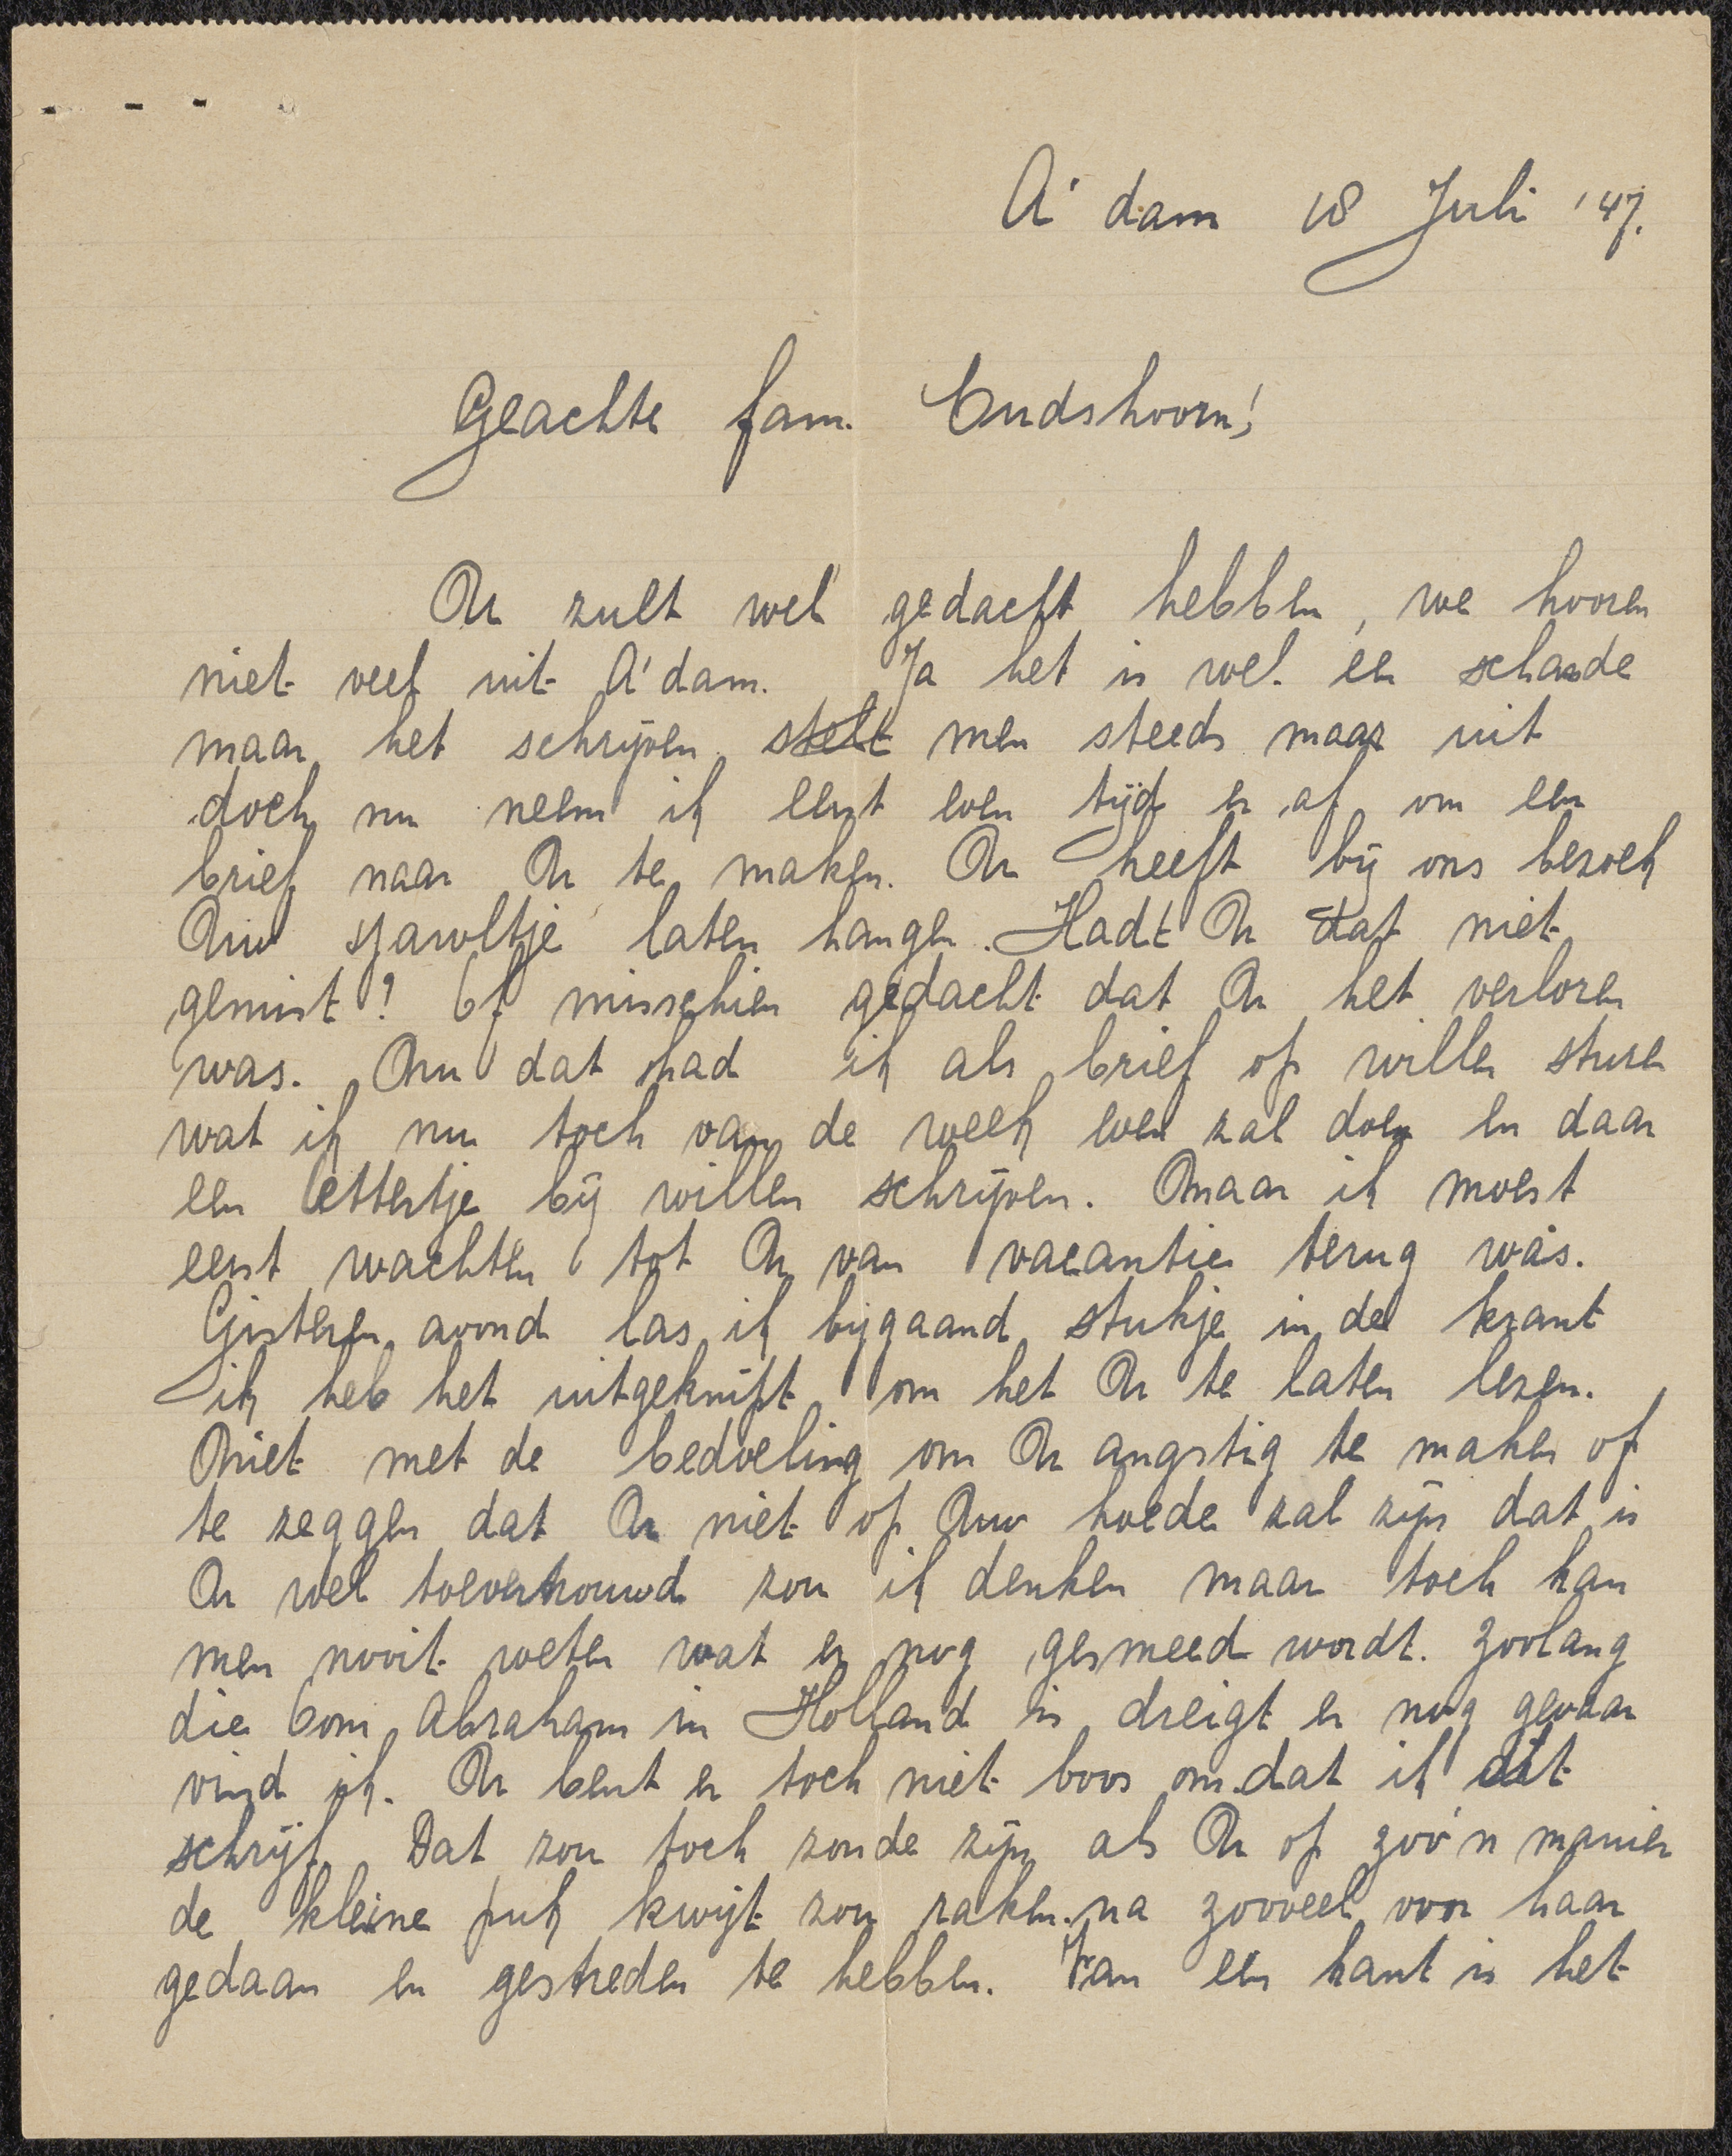 A'dam 18 Juli '47.
Geachte fam. Oudshoorn!
U zult wel gedacht hebben, we hooren
niet veel uit A'dam. Ja het is wel een schande
maar het schrijven stelt men steeds maar uit
doch nu neem ik eerst even tijd er af om een
brief naar U te maken. U heeft bij ons bezoek
Uw sjawltje laten hangen. Hadt U dat niet
gemist? Of misschien gedacht dat U het verloren
was. Nu dat had ik als brief op willen sturen
wat ik nu toch van de week even zal doen en daar
een lettertje bij willen schrijven. Maar ik moest
eerst wachten tot U van vacantie terug was.
Gisteren avond las ik bijgaand stukje in de krant
ik heb het uitgeknipt om het U te laten lezen.
Niet met de bedoeling om U angstig te maken of
te zeggen dat U niet op Uw hoede zal zijn dat is
U wel toevertrouwd zou ik denken maar toch kan
men nooit weten wat er nog gesmeed wordt. Zoolang
die Oom Abraham in Holland is dreigt er nog gevaar
vind ik. U bent er toch niet boos om dat ik dit
schrijf. Dat zou toch zonde zijn als U op zoo'n manier
de kleine puk kwijt zou raken na zooveel voor haar
gedaan en gestreden te hebben. Van een kant is het